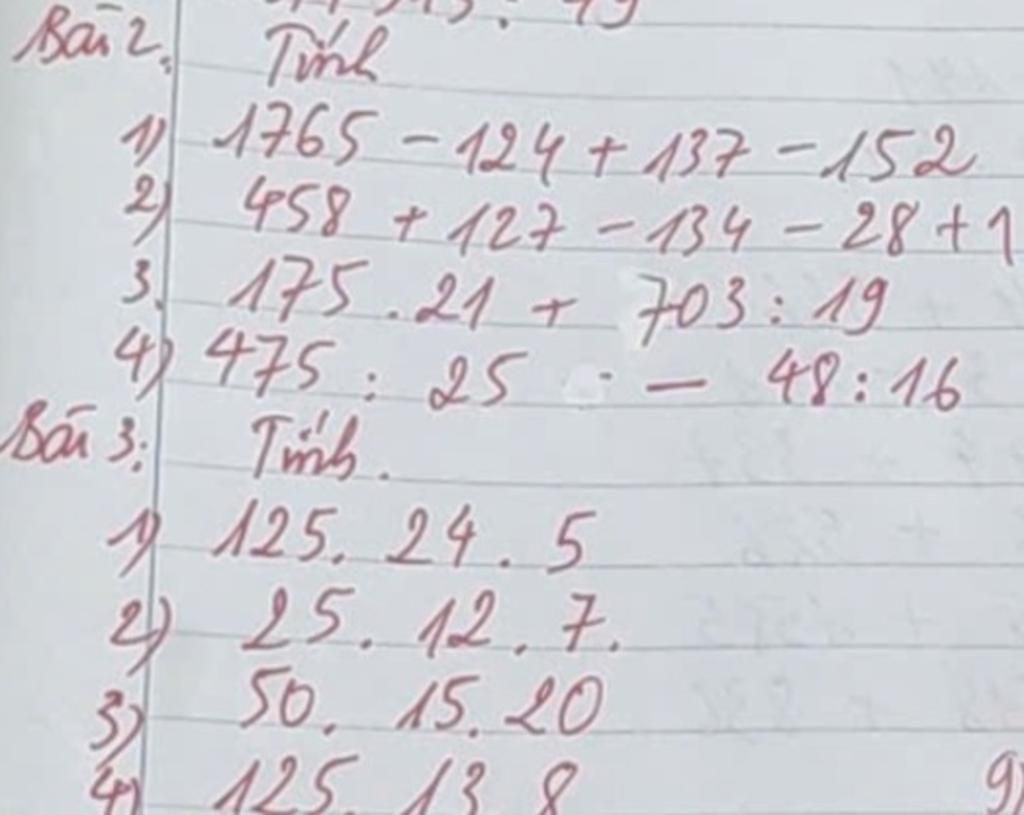 Bài 2. Tính
1) 1765 - 124 + 137 - 152
2) 458 + 127 - 134 - 28 + 1
3. 175 . 21 + 703 : 19
4) 475 : 25 - 48 : 16
Bài 3: Tính.
1) 125. 24 . 5
2) 25. 12 . 7.
3) 50. 15. 20
4) 125. 13 8
9)